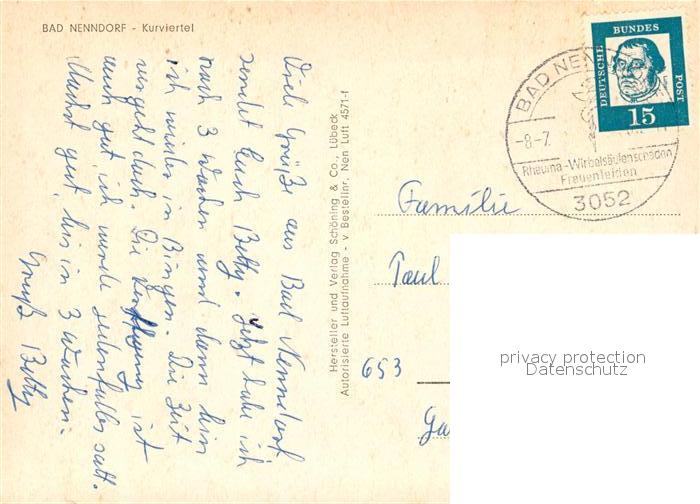 BAD NENNDORF - Kurviertel
Viele Grüße aus Bad Nenndorf
sendet Euch Betty. Jetzt habe ich
noch 3 Wochen und dann bin
ich wieder in Bingen. Die Zeit
vergeht doch. Die Verpflegung ist
auch gut, ich werde jedenfalls satt.
Machst gut, bis in 3 Wochen.
Gruß Betty
Hersteller und Verlag Schöning & Co., Lübeck
Autorisierte Luftaufnahme - v. Bestellnr. Nen Luft 4571-f
DEUTSCHE BUNDES POST
15
BAD NEN
-8-7
Rheuma-Wirbelsäulenschäden
Frauenleiden
3052
Familie
Paul
653
privacy protection
Datenschutz